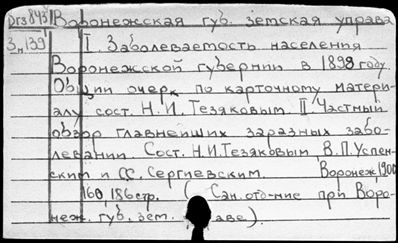 Dгз 843 Воронежская губ. земская управа
Зн139 I. Заболеваемость населения
Воронежской губернии в 1898 году.
Общий очерк по карточному матери-
алу сост. Н.И. Тезяковым. II Частный
обзор главнейших заразных забо-
левании. Сост. Н.И.Тезяковым, В.П.Успен-
ским и С.С. Сергиевским. Воронеж, 1900
160, 186 стр. ( Сан. отд-ние при Воро-
неж. губ. зем. аве).